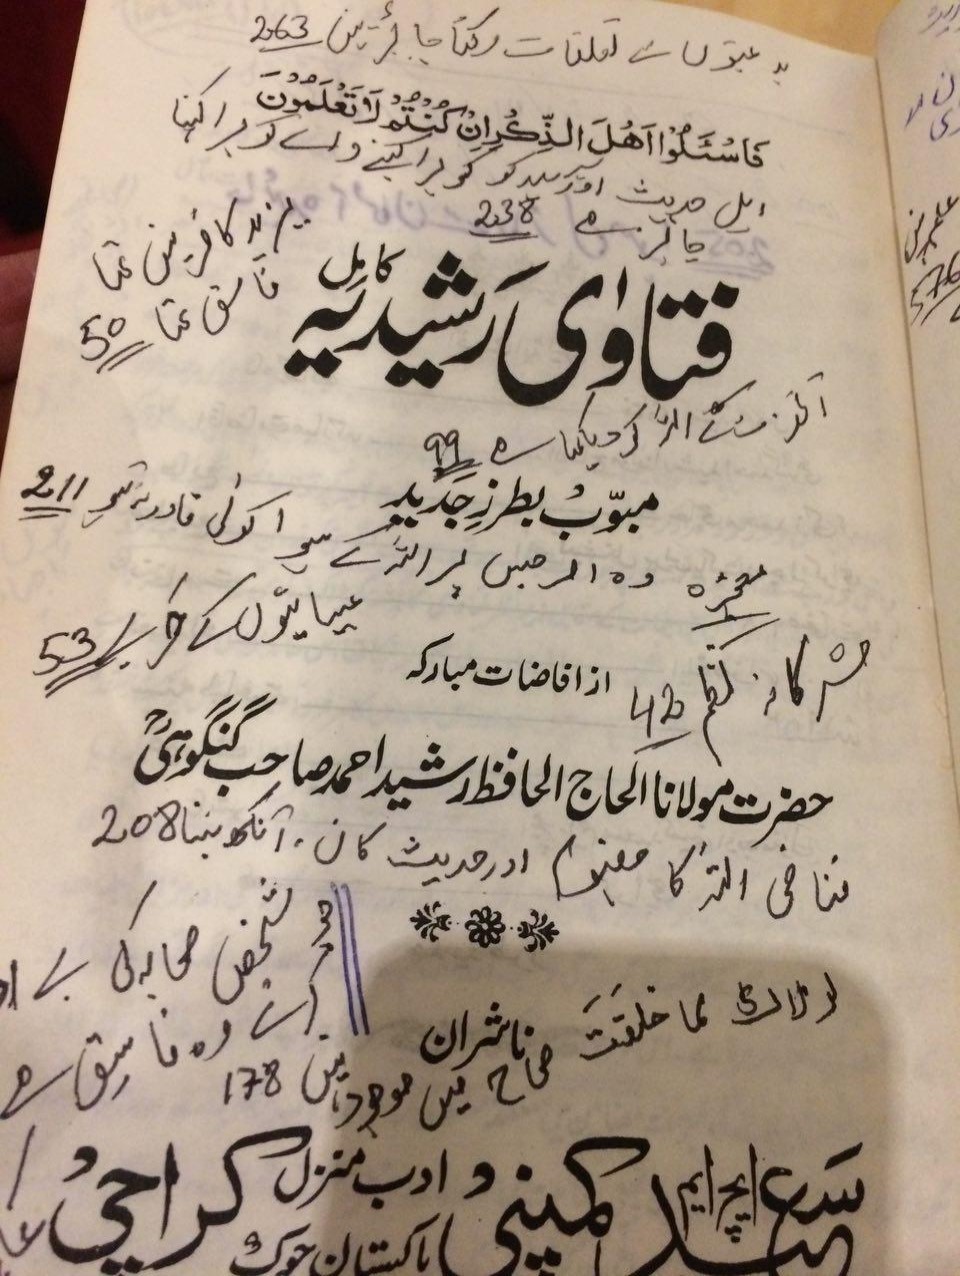 بدعتیوں سے تعلقات رکھنا جائز نہیں 263
فَاسْئَلُوْا اَهْلَ الذِّكْرِ اِنْ كُنْتُمْ لَا تَعْلَمُوْنَ
اہل حدیث اور کو برا کہنے والے کو برا کہنا
جائز ہے 238
یزید کافر نہیں تھا
فاسق تھا 50
فتاویٰ رشیدیہ کامل
اللہ کو دیکھا ہے 99
مبوّب بطرزِ جدید
211
معجزہ وہ امر جس پر اللہ کے سوا کوئی قادر نہ ہو
عیسائیوں کے 53
42
از افاضات مبارکہ
حضرت مولانا الحاج الحافظ رشید احمد صاحب گنگوہیؒ
فنا فی اللہ کا مفہوم اور حدیث کان، آنکھ بننا 208
جو شخص صحابہ کی بے
کرے وہ فاسق ہے
لولاک لما خلقت
ناشران
صحاح میں موجود نہیں 178
سعید ایچ ایم کمپنی ادب منزل کراچی
پاکستان چوک
576